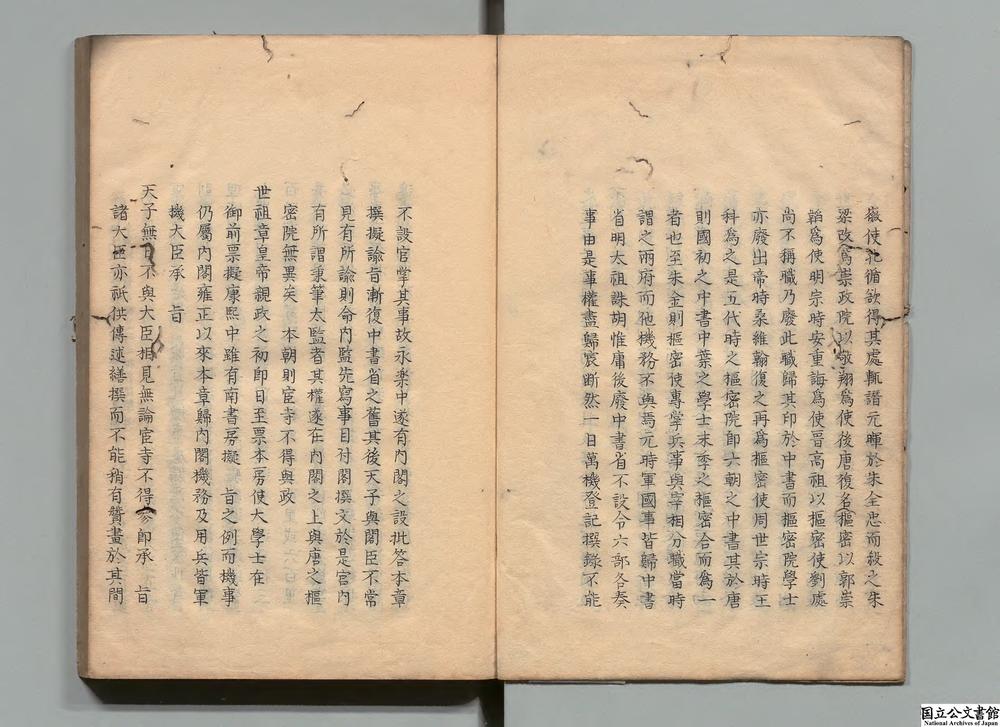 嶽使孔循欲得其處輒譖元暉於朱全忠而殺之朱
梁改為崇政院以敬翔為使後唐復名樞密以郭崇
韜為使明宗時安重誨為使晉高祖以樞密使劉處
尚不稱職乃廢此職歸其印於中書而樞密院學士
亦廢出帝時桑維翰復之再為樞密使周世宗時王
科為之是五代時之樞密院即六朝之中書其於唐
則國初之中書中葉之學士末季之樞密合而為一
者也至朱金則樞密使專掌兵事與宰相分職當時
謂之兩府而他機務不與焉元時軍國事皆歸中書
省明太祖誅胡惟庸後廢中書省不設令六部各奏
事由是事權盡歸宸斷然一日萬機登記撰錄不能
不設官掌其事故永樂中遂有內閣之設批答本章
撰擬諭旨漸復中書省之舊其後天子與閣臣不常
見有所諭則命內監先寫事目付閣撰文於是宮內
有所謂秉筆太監者其權遂在內閣之上與唐之樞
密院無異矣 本朝則宦寺不得與政
世祖章皇帝親政之初即日至票本房使大學士在
御前票擬康熙中雖有南書房擬 旨之例而機事
仍屬內閣雍正以來本章歸內閣機務及用兵皆軍
機大臣承 旨
天子無日不與大臣相見無論宦寺不得參即承 旨
諸大臣亦祇供傳述繕撰而不能稍有贊畫於其間
国立公文書館
National Archives of Japan